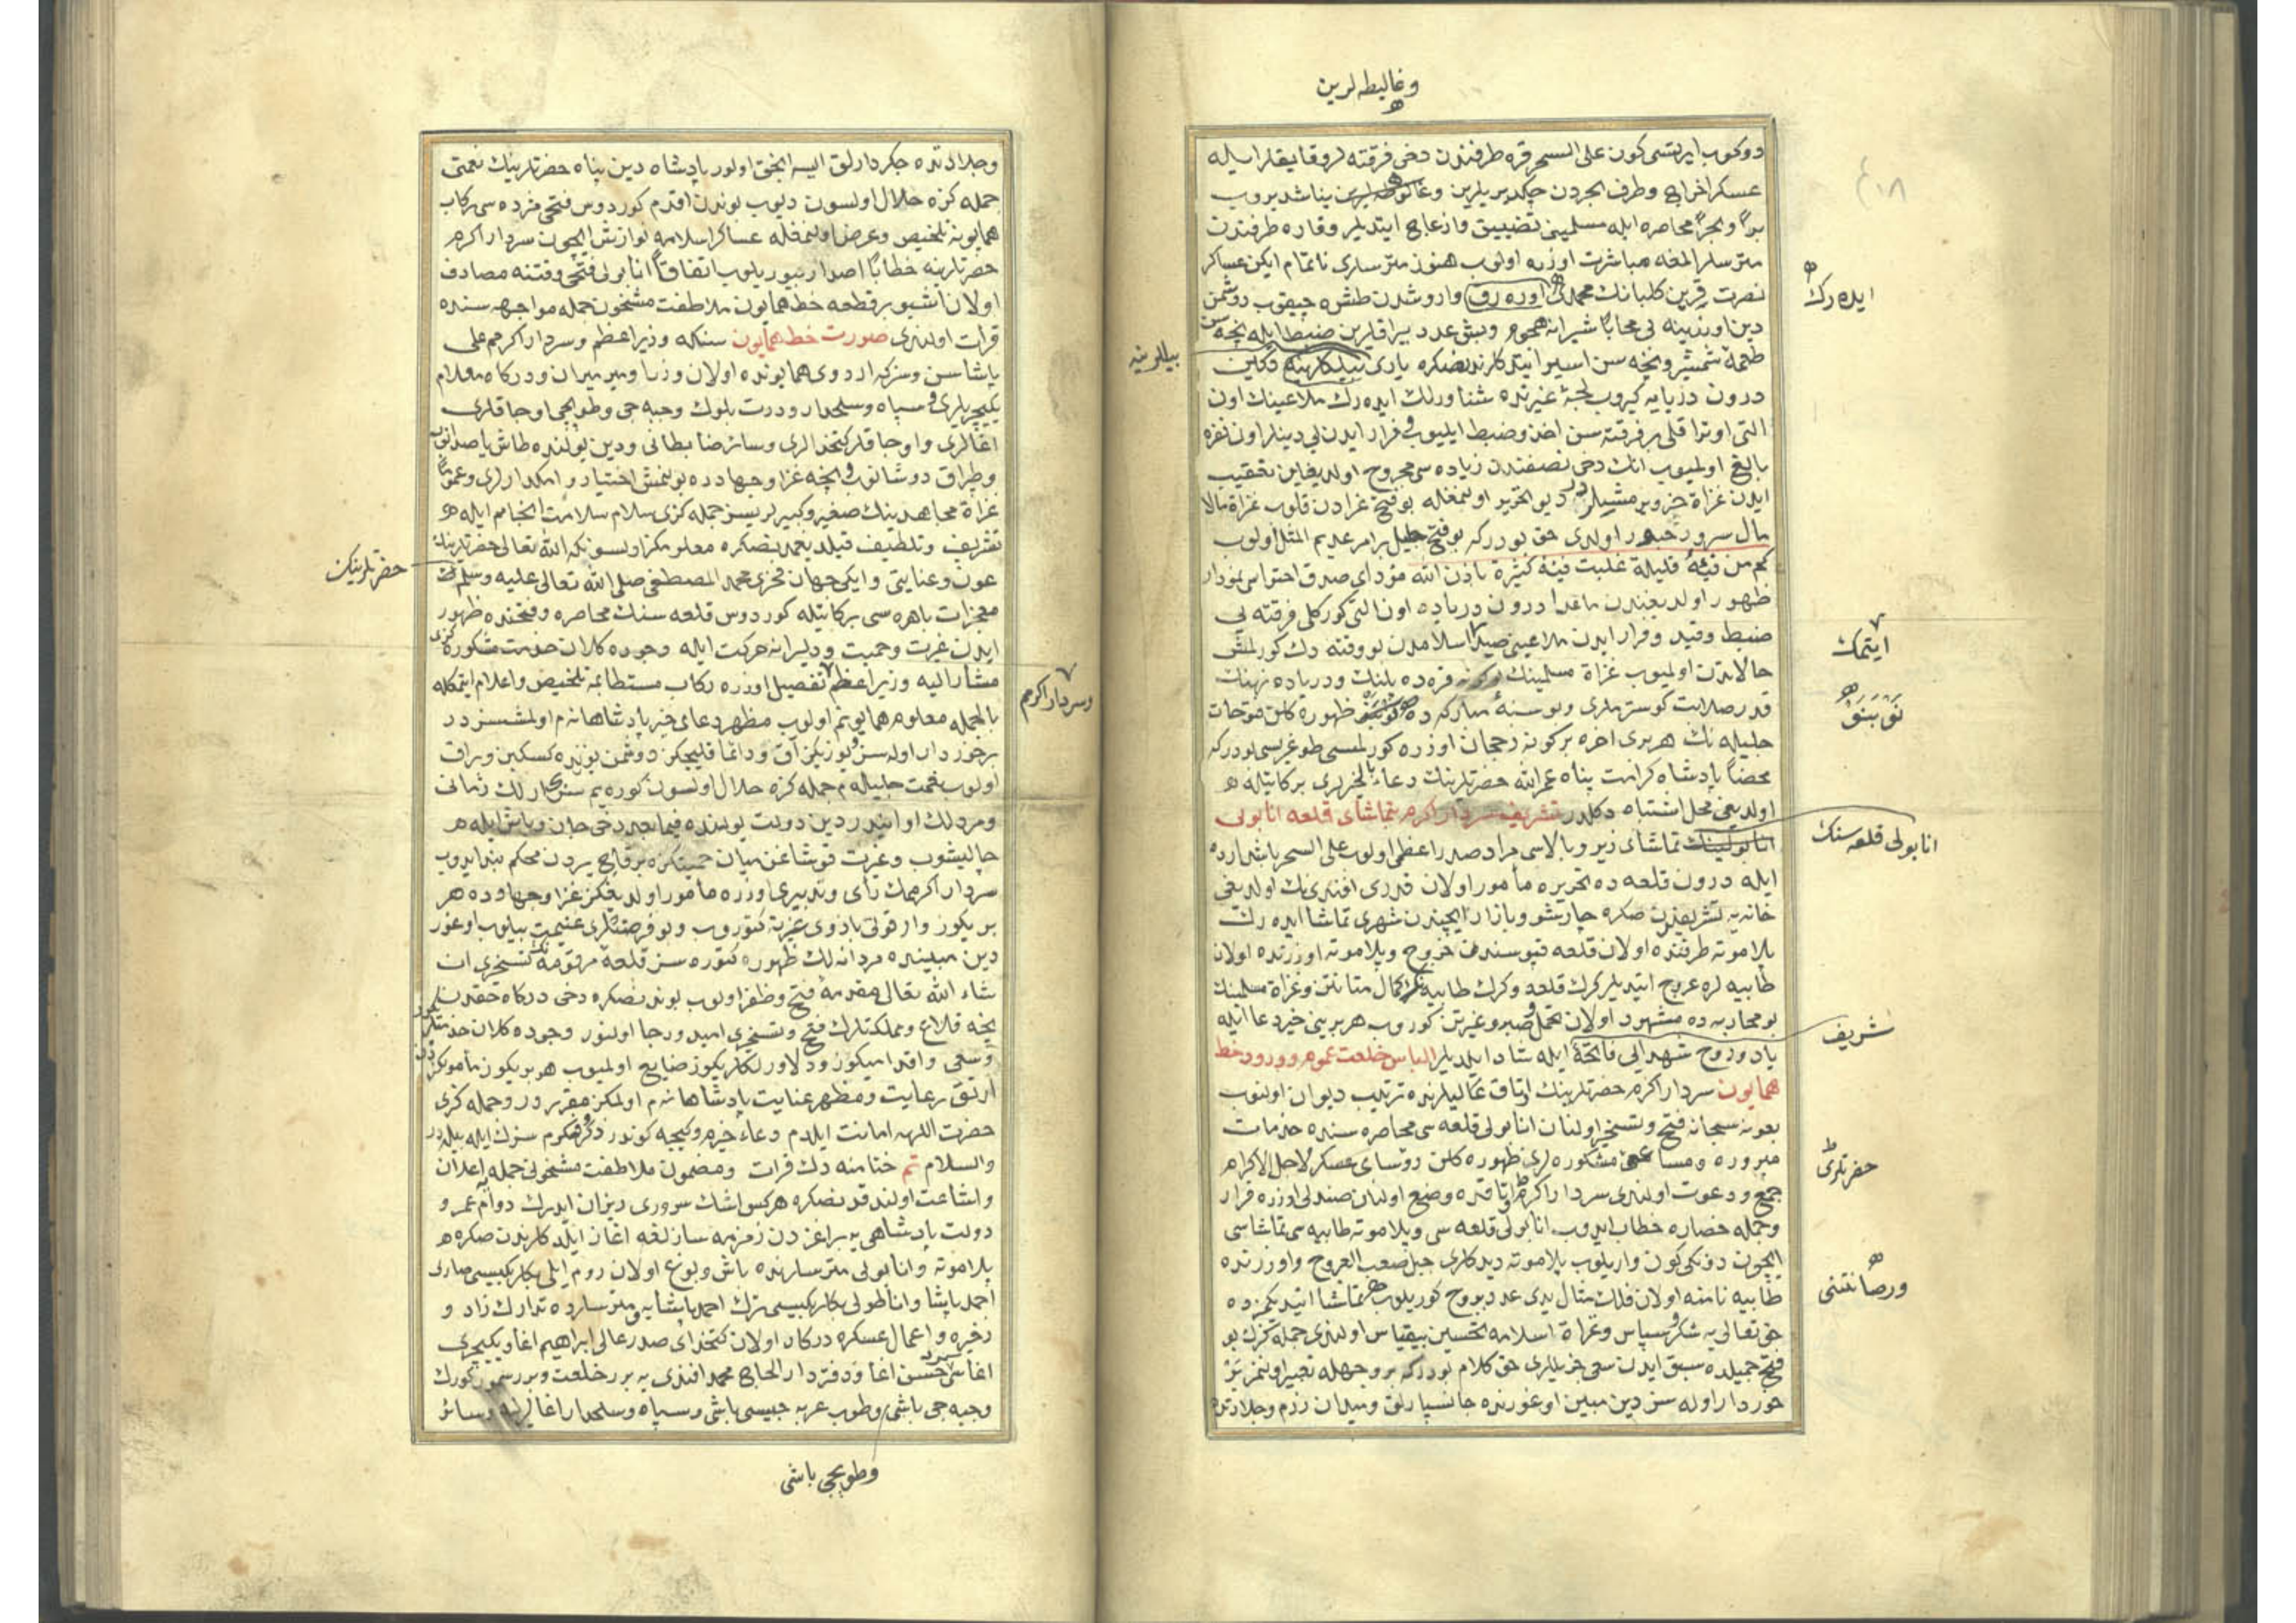 وغاليطه لرين
دوكوب ايرتسی كون علی السحر قره طرفندن دخی فرقته لر وقايقلر ايله
عسكر اخراج وطرف بحردن چكديريلرين
براً وبحراً محاصره ايله مسلمينی تضييق وازعاج ايتديلر وقاره طرفندن
متريسلر المغه مباشرت اوزره اولوب هنوز متريسلری ناتمام ايكن عساكر
نصرت قرين كلبانك محمدی واروشدن طشره چيقوب دوشمن
دين اوزرينه بی محابا شيرانه هجوم وبش عدد بيراقلرين ضبط ايله نيجه سن
طعمهٔ شمشير ونيجه سن اسير ايتدكلرندنصكره
درون دريايه كيروب لجهٔ غيرتده شناورلك ايده رك ملاعينك اون
التی اوتراقلی بر فرقته سن اخذ وضبط ايليوب فرار ايدن بی دينلر اون نفره
بالغ اولميوب انك دخی نصفندن زياده سی مجروح اولديغين تعقيب
ايدن غزاة خبر ويرمشلردر ديو تحرير اولنمغله بو فتح غرادن قلوب غزاة مالا
مال سرور حبور اولدی حق بودر كه بو فتح جليل بر امر عديم المثل اولوب
كم من فئة قليلة غلبت فئة كثيرة باذن الله مؤدای صدق احتواسی نمودار
ظهور اولديغندن ماعدا درون درياده اون التی كوركلی فرقته يی
ضبط وقيد وفرار ايدن ملاعينی صيد اسلامدن بو وقته دك كورلمش
حالاتدن اولميوب غزاة مسلمينك قره ده پلنك ودرياده نهنك
قدر صلابت كوسترملری وبو سنهٔ مباركه ده ظهوره كلن فتوحات
جليله نك هر بری اخره بر كونه رجحان اوزره كورلمسی طوغريسی بودر كه
محضا پادشاه كرامت پناه عمر الله حضرتلرينك دعاء بالخيرلری بركاتيله
اولديغی محل اشتباه دكلدر تشريف سردار اكرم بتماشای قلعه انابولی
تماشای زير وبالاسی مراد صدر اعظمی اولوب علی السحر باشارده
ايله درون قلعه ده تحريره مأمور اولان قدری افندی نك اولديغی
خانه يه تشريفندن صكره چارشو وبازار ايچندن شهری تماشا ايده رك
پلاموته طرفنده اولان قلعه قپوسندن خروج وپلاموته اوزرنده اولان
طابيه لره عروج ايتديلر كرك قلعه وكرك طابيه لرك كمال متانتن وغزاة مسلمينك
بو محاربه ده مشهود اولان تحمل وصبر وغيرتن كوروب هر برينی خير دعا ايله
ياد وروح شهدايی فاتحه ايله شاد ايلديلر الباس خلعت عموم وورود خط
همايون سردار اكرم حضرتلرينك اوتاق عاليلرنده ترتيب ديوان اولنوب
بعونه سبحانه فتح وتسخير اولنان انابولی قلعه سی محاصره سنده خدمات
مبروره ومساعی مشكوره لری ظهوره كلن رؤسای عسكر لاجل الاكرام
جمع ودعوت اولندی سردار اكرم اوتاقده وضع اولنان صندلی اوزره قرار
وجمله حضاره خطاب ايدوب انابولی قلعه سی وپلاموته طابيه سی تماشاسی
ايچون دونكی كون واريلوب پلاموته ديدكلری جبل صعب العروج واوزرنده
طابيه نامنه اولان فلك مثال يدی عدد بروج كوريلوب تماشا ايتديكمزده
حق تعالی يه شكر وسپاس وغزاة اسلامه تحسين بيقياس اولندی جمله كزك بو
فتح جميلده سبق ايدن سعی جزيللری حق كلام بودر كه بر وجهله تعبير اولنمز
خوردار اوله سز دين مبين اوغورنده جانسپارلق وميدان رزم وجلادتده
ايده رك
بيللرينه
ايتمك
انابولی قلعه سنك
شريف
حضرتلری
ورصانتنی
وجلادتده جكردارلق انجق اولور پادشاه دين پناه حضرتلرينك نعمتی
جمله كزه حلال اولسون ديوب بوندن اقدم كوردوس فتحی مژده سی ركاب
همايونه تلخيص وعرض اولنمغله عساكر اسلاميه نوازش ايچون سردار اكرم
حضرتلرينه خطاباً اصدار بيوريلوب اتفاقاً انابولی فتحی وقتنه مصادف
اولان اشبو بر قطعه خط همايون ملاطفت مشحون جمله مواجهه سنده
قرات اولندی صورت خط همايون سنكه وزير اعظم وسردار اكرمم علی
پاشاسن وسزكه اردوی همايونده اولان وزرا وميرميران ودركاه معلام
يكيچريلری وسپاه وسلحدار ودرت بلوك وجبه جی وطوپجی اوجاقلری
اغالری واوجاقلر كتخدالری وسائر ضابطانی ودين يولنده طاش ياصدانوب
وطپراق دوشانوب نيجه غزا وجهادده بولنمش اختيار وامكدارلری وعموماً
غزاة مجاهدينك صغير وكبيرلريسز جمله كزی سلام سلامت انجامم ايله
تشريف وتلطيف قيلديغمدنصكره معلومكز اولسون كه الله تعالی حضرتلرينك
عون وعنايتی وايكی جهان فخری محمد المصطفی صلی الله تعالی عليه وسلم
معجزات باهره سی بركاتيله كوردوس قلعه سنك محاصره وفتحنده ظهور
ايدن غيرت وحميت ودليرانه حركت ايله وجوده كلان خدمت مشكوره كزی
مشار اليه وزير اعظم تفصيل اوزره ركاب مستطابمه تلخيص واعلام ايتمكله
بالجمله معلوم همايونم اولوب مظهر دعای خير پادشاهانه م اولمشسزدر
برخوردار اوله سز يوزيكز آق ودائما قليچيكز دوشمن يوزنده كسكين وبراق
اولوب نعمت جليله م جمله كزه حلال اولسون كوره يم سزی ارلك زمانی
ومردلك اوانيدر دين دولت يولنده فيمابعد دخی جان وباش ايله
چاليشوب وغيرت قوشاغن ميان حميتكزه بر قاچ يردن محكم بند ايدوب
سردار اكرممك رأی وتدبيری اوزره مأمور اولديغكز غزا وجهادده هر
بريكوز وار قوتی بازوی غيرته كتوروب وبو فرصتلری غنيمت بيلوب اوغور
دين مبينده مردانه لك ظهوره كتوره سز قلعهٔ مرقومه نك تسخيری ان
شاء الله تعالی مقدمهٔ فتح وظفر اولوب بوندنصكره دخی دركاه حقدن
نيجه قلاع ومملكتلرك فتح وتسخيری اميد ورجا اولنور وجوده كلان
وسعی واقداميكوز ودلاورلكلريكوز ضايع اولميوب هر بريكوز
ارتق رعايت ومظهر عنايت پادشاهانه م اولمكز مقرردر وجمله كزی
حضرت اللهه امانت ايلدم دعاء خيرم كيجه كوندوز سزك ايله بيله در
والسلام تم ختامنه دك قرات ومضمون ملاطفت مشحونی جمله يه اعلان
واشاعت اولندقدنصكره هركس اشك سروری ريزان ايدرك دوام عمر و
دولت پادشاهی يه بر اغزدن زمزمه ساز نغمه اغاز ايلدكلرندن صكره
پلاموته وانابولی متريسلرنده باش وبوغ اولان روم ايلی بكلربكيسی صاری
احمد پاشا واناطولی بكلربكيسی ترك احمد پاشايه ومتريسلرده تدارك زاد و
ذخيره واعمال عسكره دركار اولان كتخدای صدر عالی ابراهيم اغا ويكيچری
اغاسی حسن اغا ودفتردار الحاج محمد افندی يه برر خلعت وبرر سمور كورك
وجبه جی باشی وطوب عربه جيسی باشی وسپاه وسلحدار اغالرينه وسائر
حضرتلرينك
وسردار اكرمم
وطوپجی باشی